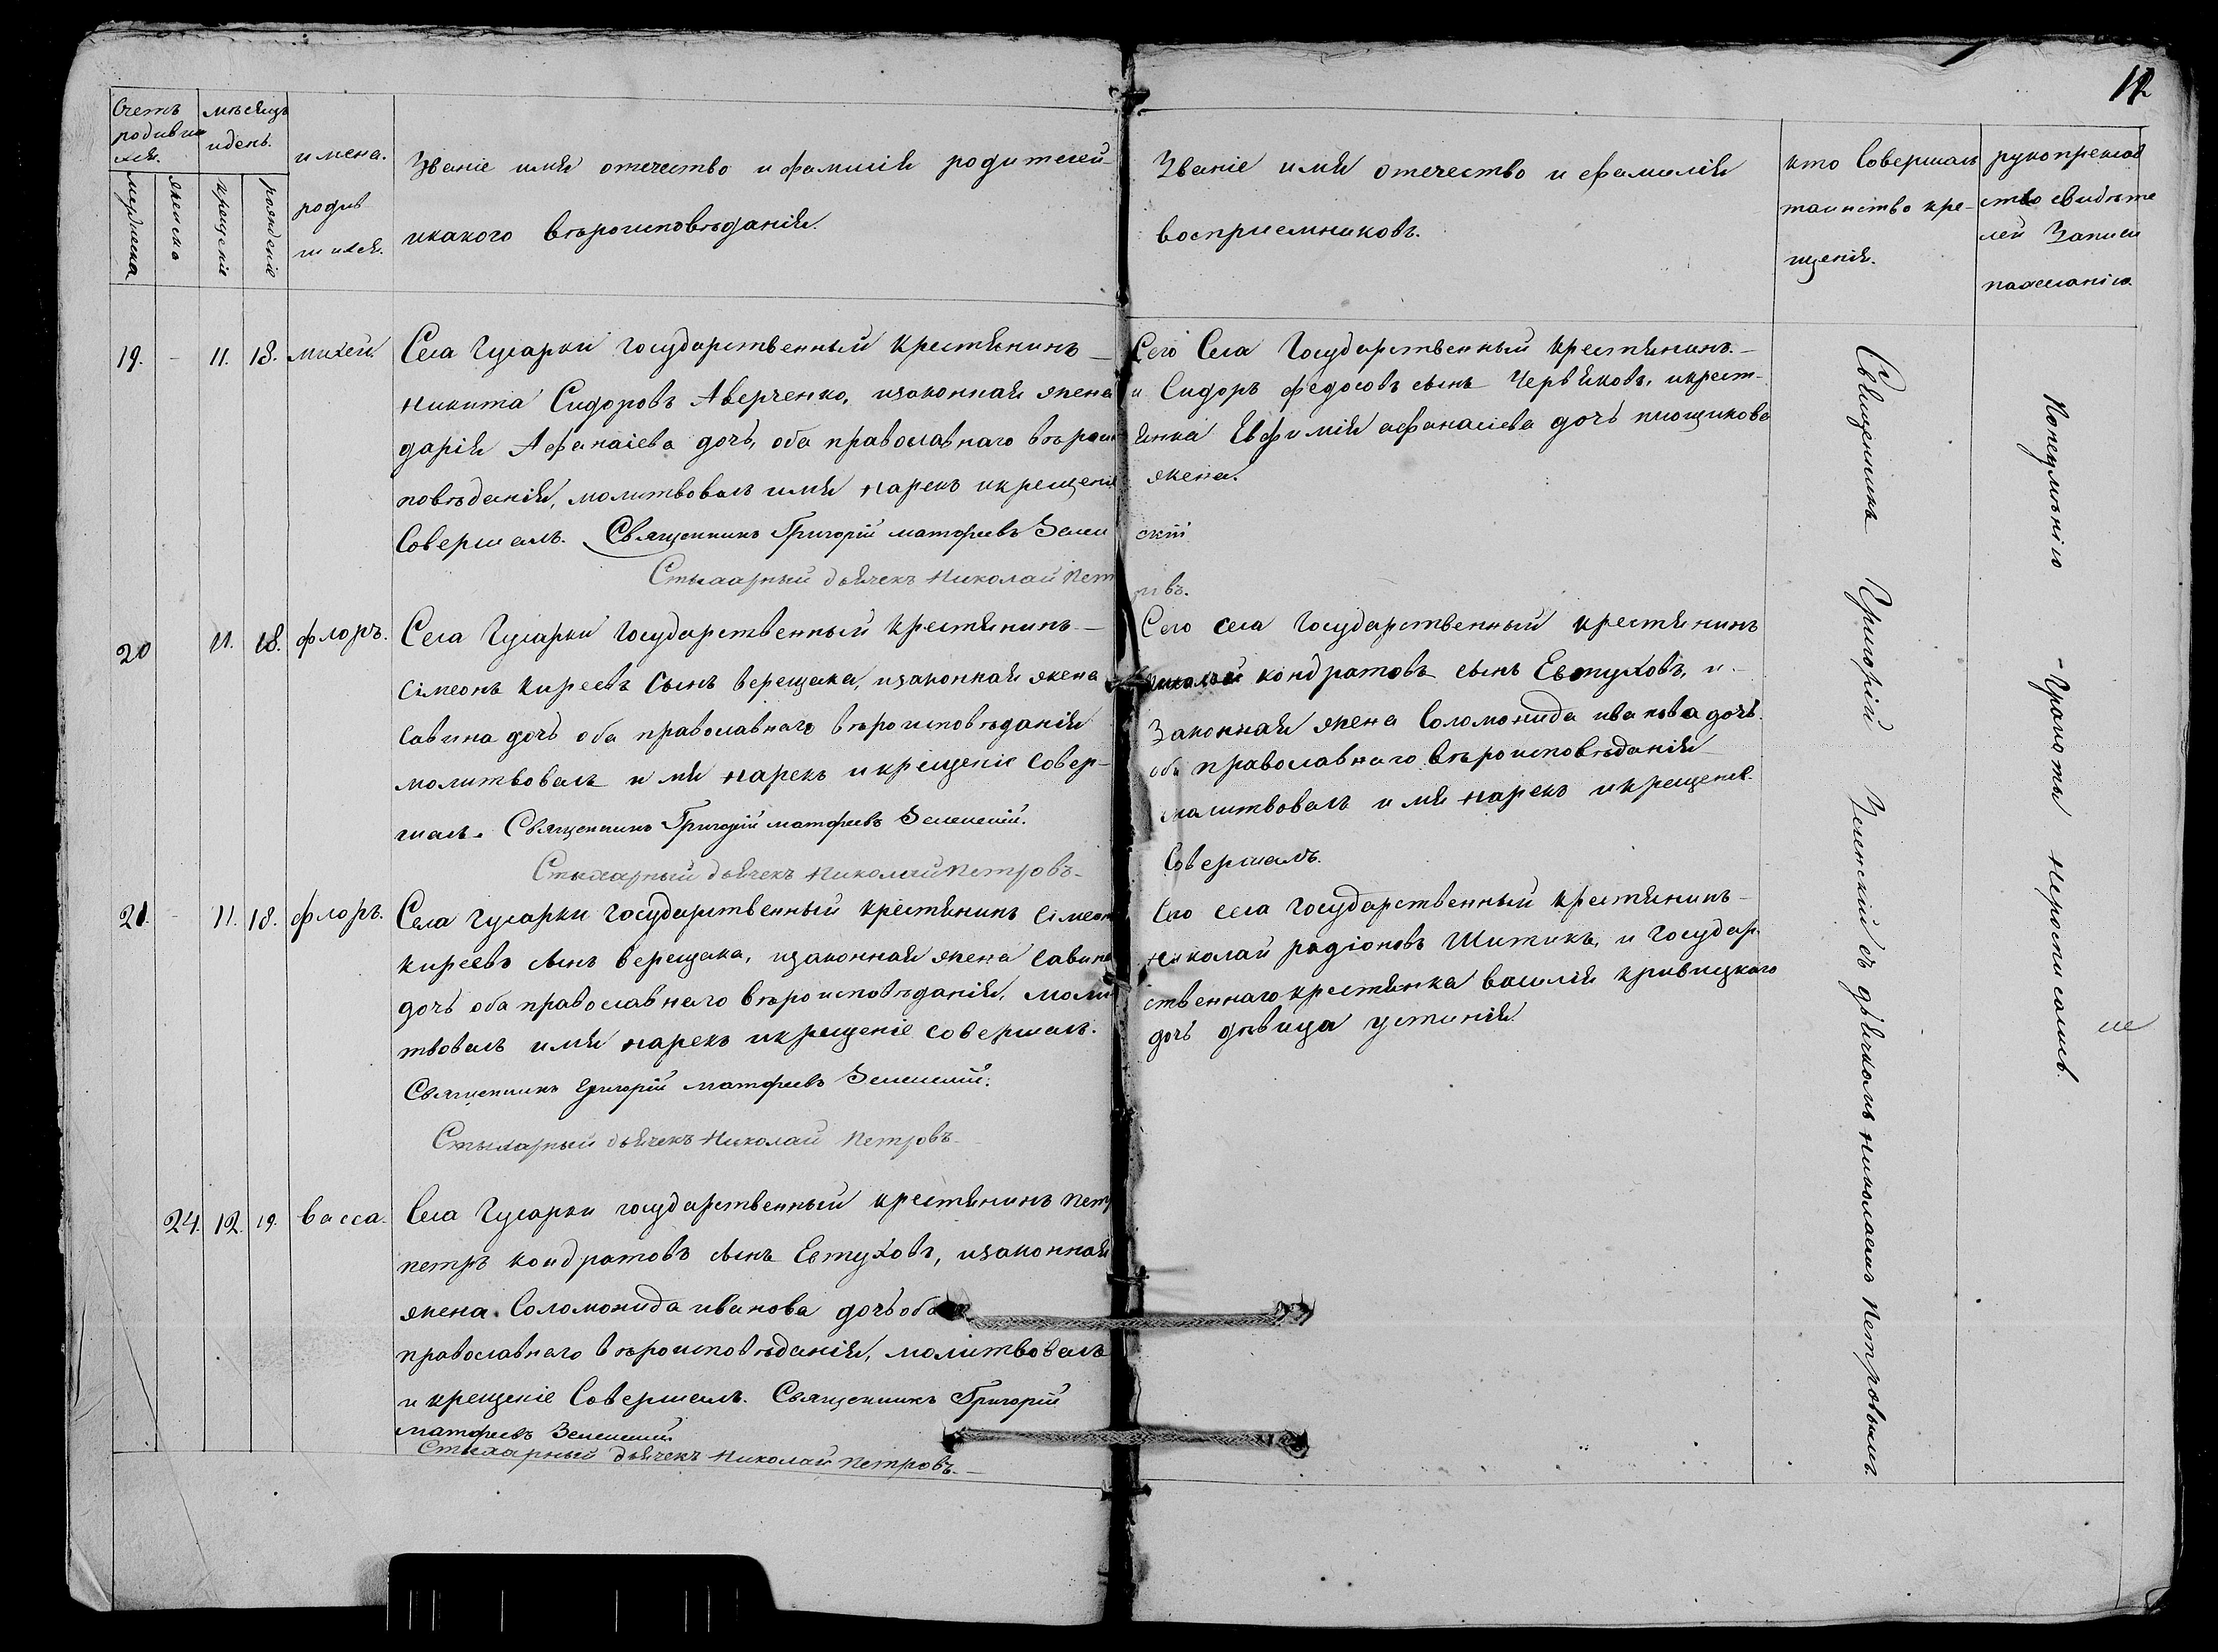 12
Счетъ
родивши
хся.
мѣсяцъ
и день.
имена.
родив
шихся.
мужеска
женско
крещеніе
рожденіе
Званіе имя отечество и фамилія родителей
и какого вѣроисповѣданія.
Званіе имя отечество и фамилія
восприемниковъ.
кто Совершалъ
таинство кре-
щенія.
рукоприклад
ство свидѣте
лей Записи
пажеланію.
19. - 11. 18. михей.
Села Гусарки Государственный крестянинъ
Никита Сидоровъ Аверченко, изаконная жена
дарія Афанасіева дочь, оба православнаго вѣроис
повѣданія, молитвовалъ имя нарекъ и крещеніе
Совершалъ. Священникъ Григорій матфеевъ Зелен
скій
Стихарный дьячекъ Николай Пет
ровъ.
Сего Села Государственный крестянинъ.
и Сидоръ федосовъ сынъ Червяковъ, и крест-
янка Евфимія афанасіева дочь
жена.
20 11. 18. флоръ.
Села Гусарки Государственный крестянинъ
Сімеонъ киреевъ Сынъ верещака, изаконная жена
Савина дочь оба православнаго вѣроисповѣданія
молитвовалъ имя нарекъ и крещеніе Совер-
шалъ. Священникъ Григорій матфеевъ Зеленскій.
Стихарный дьячекъ Николай Петровъ
Сего села Государственный крестянинъ
кондратовъ сынъ Евтуховъ, и
Законная жена Соломонида иванова дочь.
оба православнаго вѣроисповѣданія
малитвовалъ имя нарекъ и крещеніе
Совершалъ.
21. - 11. 18. флоръ.
Села Гусарки Государственный крестянинъ Сімеонъ
киреевъ сынъ верещака, изаконная жена Савина
дочь оба православнаго вѣроисповѣданія, моли
твовалъ имя нарекъ и крещеніе совершалъ.
Священникъ Григорій матфеевъ Зеленскій.
Стихарный дьячекъ Николай Петровъ
Сего села Государственный крестянинъ
Николай радіоновъ Шитикъ, и Государ
ственнаго крестянка василія кривицкаго
дочь дѣвица устинія
24. 12. 19. васса.
Села Гусарки государственный крестянинъ Петр
петръ кондратовъ сынъ Евтуховъ, изаконная
жена. Соломонида иванова дочь оба
православнаго вѣроисповѣданія, молитвовалъ
и крещеніе Совершалъ. Священникъ Григорій
матфеевъ Зеленскій
Стихарный дьячекъ Николай Петровъ.
Священникъ Григорій Зеленскій съ дьячкомъ николаемъ Петровымъ.
Понеумѣнію Граматы Неросписались.